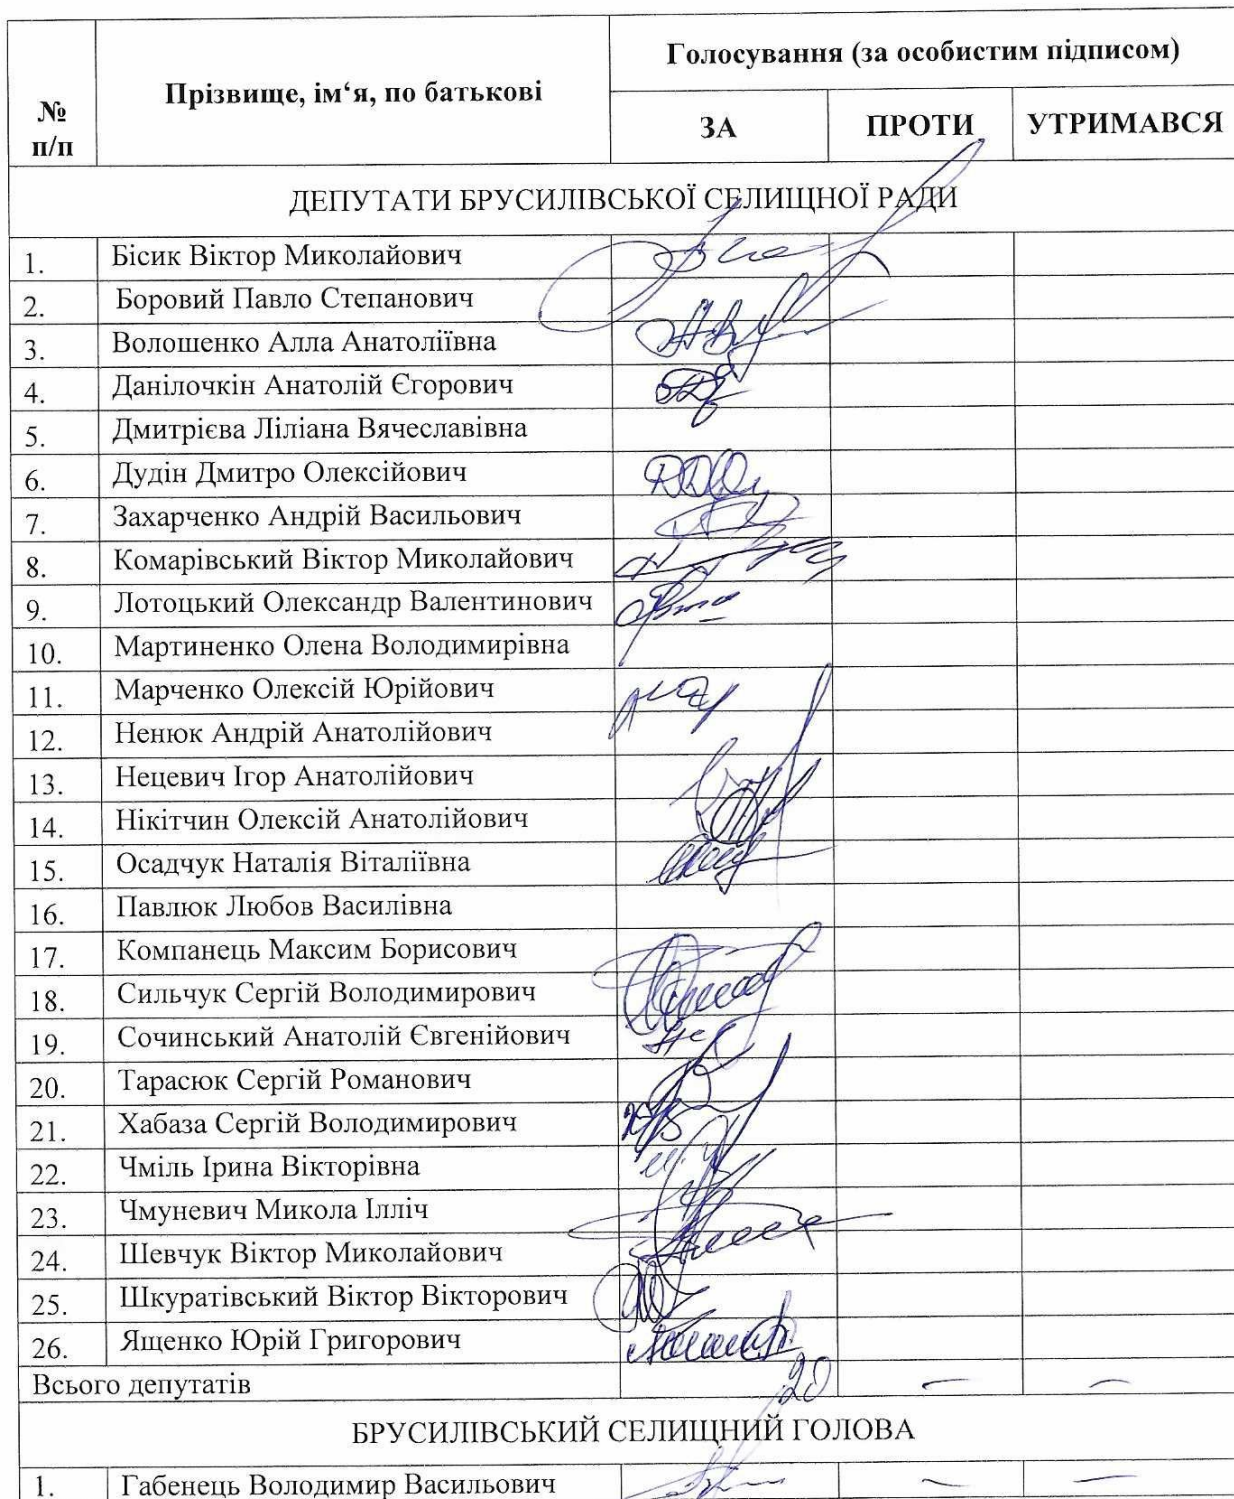 № п/п Прізвище, ім‘я, по батькові Голосування (за особистим підписом)
ЗА ПРОТИ УТРИМАВСЯ
ДЕПУТАТИ БРУСИЛІВСЬКОЇ СЕЛИЩНОЇ РАДИ
1. Бісик Віктор Миколайович
2. Боровий Павло Степанович
3. Волошенко Алла Анатоліївна
4. Данілочкін Анатолій Єгорович
5. Дмитрієва Ліліана Вячеславівна
6. Дудін Дмитро Олексійович
7. Захарченко Андрій Васильович
8. Комарівський Віктор Миколайович
9. Лотоцький Олександр Валентинович
10. Мартиненко Олена Володимирівна
11. Марченко Олексій Юрійович
12. Ненюк Андрій Анатолійович
13. Нецевич Ігор Анатолійович
14. Нікітчин Олексій Анатолійович
15. Осадчук Наталія Віталіївна
16. Павлюк Любов Василівна
17. Компанець Максим Борисович
18. Сильчук Сергій Володимирович
19. Сочинський Анатолій Євгенійович
20. Тарасюк Сергій Романович
21. Хабаза Сергій Володимирович
22. Чміль Ірина Вікторівна
23. Чмуневич Микола Ілліч
24. Шевчук Віктор Миколайович
25. Шкуратівський Віктор Вікторович
26. Ященко Юрій Григорович
Всього депутатів 20 – –
БРУСИЛІВСЬКИЙ СЕЛИЩНИЙ ГОЛОВА
1. Габенець Володимир Васильович – –